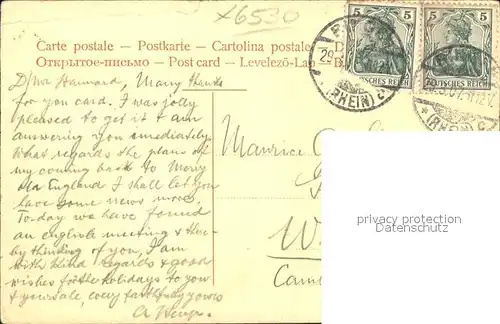 x6530
Carte postale – Postkarte – Cartolina postale
Открытое письмо – Post card – Levelező-Lap
5 5 5 5
DEUTSCHES REICH
29.
(RHEIN) c
(RHEIN)
Many thanks
for you card. I was jolly
pleased to get it & am
answering you immediately.
What regards the plans of
my coming back to Merry
England I shall let you
have some news more.
Today we have found
an english meeting & there-
by thinking of you, I am
with kind regards & good
wishes for the holidays to you
& yours, very faithfully yours
A.
Maurice
W.
Cam
privacy protection
Datenschutz